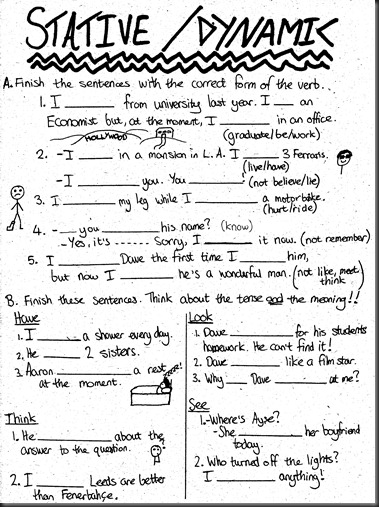 STATIVE / DYNAMIC
A. Finish the sentences with the correct form of the verb...
1. I ______ from university last year. I ___ an
Economist but, at the moment, I ______ in an office.
(graduate/be/work)
HOLLYWOOD
2. - I ______ in a mansion in L.A. I ______ 3 Ferraris.
(live/have)
- I ______ you. You ______. (not believe/lie)
3. I ______ my leg while I ______ a motorbike.
(hurt/ride)
4. - ___ you ______ his name? (know)
- Yes, it's ------ Sorry, I ______ it now. (not remember)
5. I ______ Dave the first time I ______ him,
but now I ______ he's a wonderful man. (not like, meet
think)
B. Finish these sentences. Think about the tense and the meaning!!
Have
1. I ______ a shower every day.
2. He ______ 2 sisters.
3. Aaron ______ a rest
at the moment.
Look
1. Dave ______ for his students
homework. He can't find it!
2. Dave ______ like a film star.
3. Why ___ Dave ______ at me?
Think
1. He ______ about the
answer to the question.
2. I ______ Leeds are better
than Fenerbahçe.
See
1. - Where's Ayşe?
- She ______ her boyfriend
today.
2. Who turned off the lights?
I ______ anything!